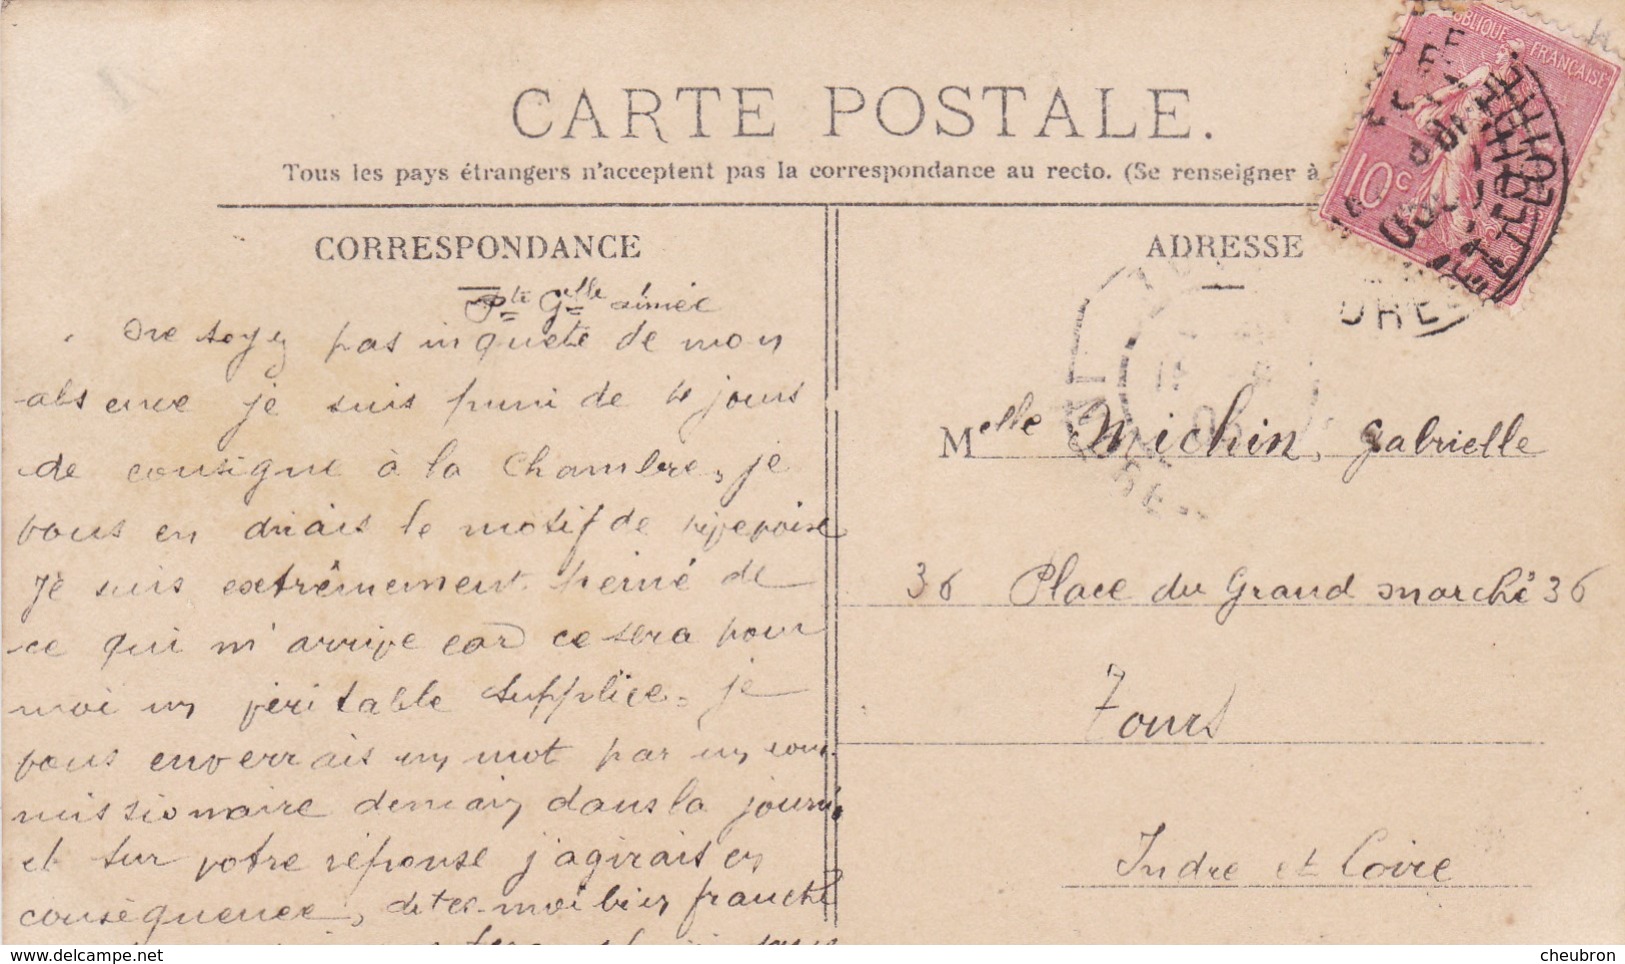 CARTE POSTALE.
Tous les pays étrangers n'acceptent pas la correspondance au recto. (Se renseigner à
CORRESPONDANCE
ADRESSE
RÉPUBLIQUE FRANÇAISE
10 c
Pte Gelle aimée
Ne soyez pas inquiète de mon
absence je suis puni de 4 jours
de consigne à la Chambre, je
vous en dirais le motif de
Je suis extrêmement peiné de
ce qui m'arrive car ce sera pour
moi un véritable supplice, je
vous enverrais un mot par un com-
missionnaire demain dans la journé
et sur votre réponse j'agirais en
conséquence, dites-moi bien franche
Melle Michin, Gabrielle
36 Place du Grand Marché 36
Tours
Indre et Loire
cheubron